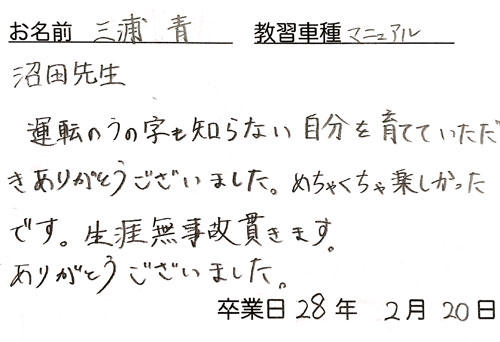 お名前 三浦 青 教習車種 マニュアル
沼田先生
運転のうの字も知らない自分を育てていただ
きありがとうございました。めちゃくちゃ楽しかった
です。生涯無事故貫きます。
ありがとうございました。
卒業日 28年 2月 20日